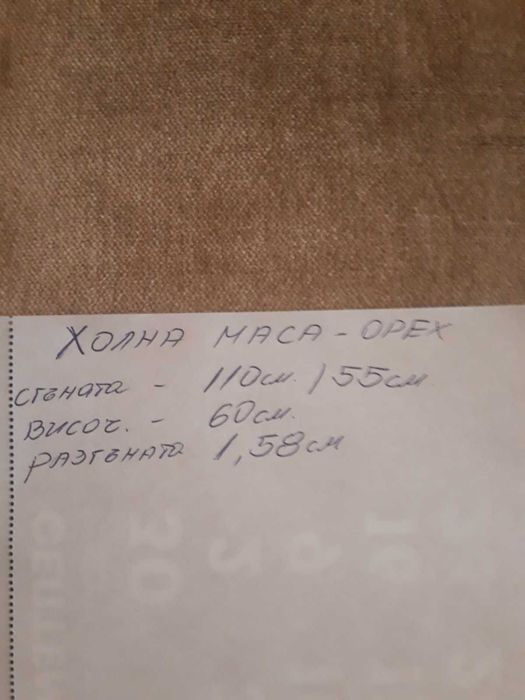 ХОЛНА МАСА - ОРЕХ
СГЪНАТА - 110см. / 55см
ВИСОЧ. - 60см.
РАЗГЪНАТА 1,58см